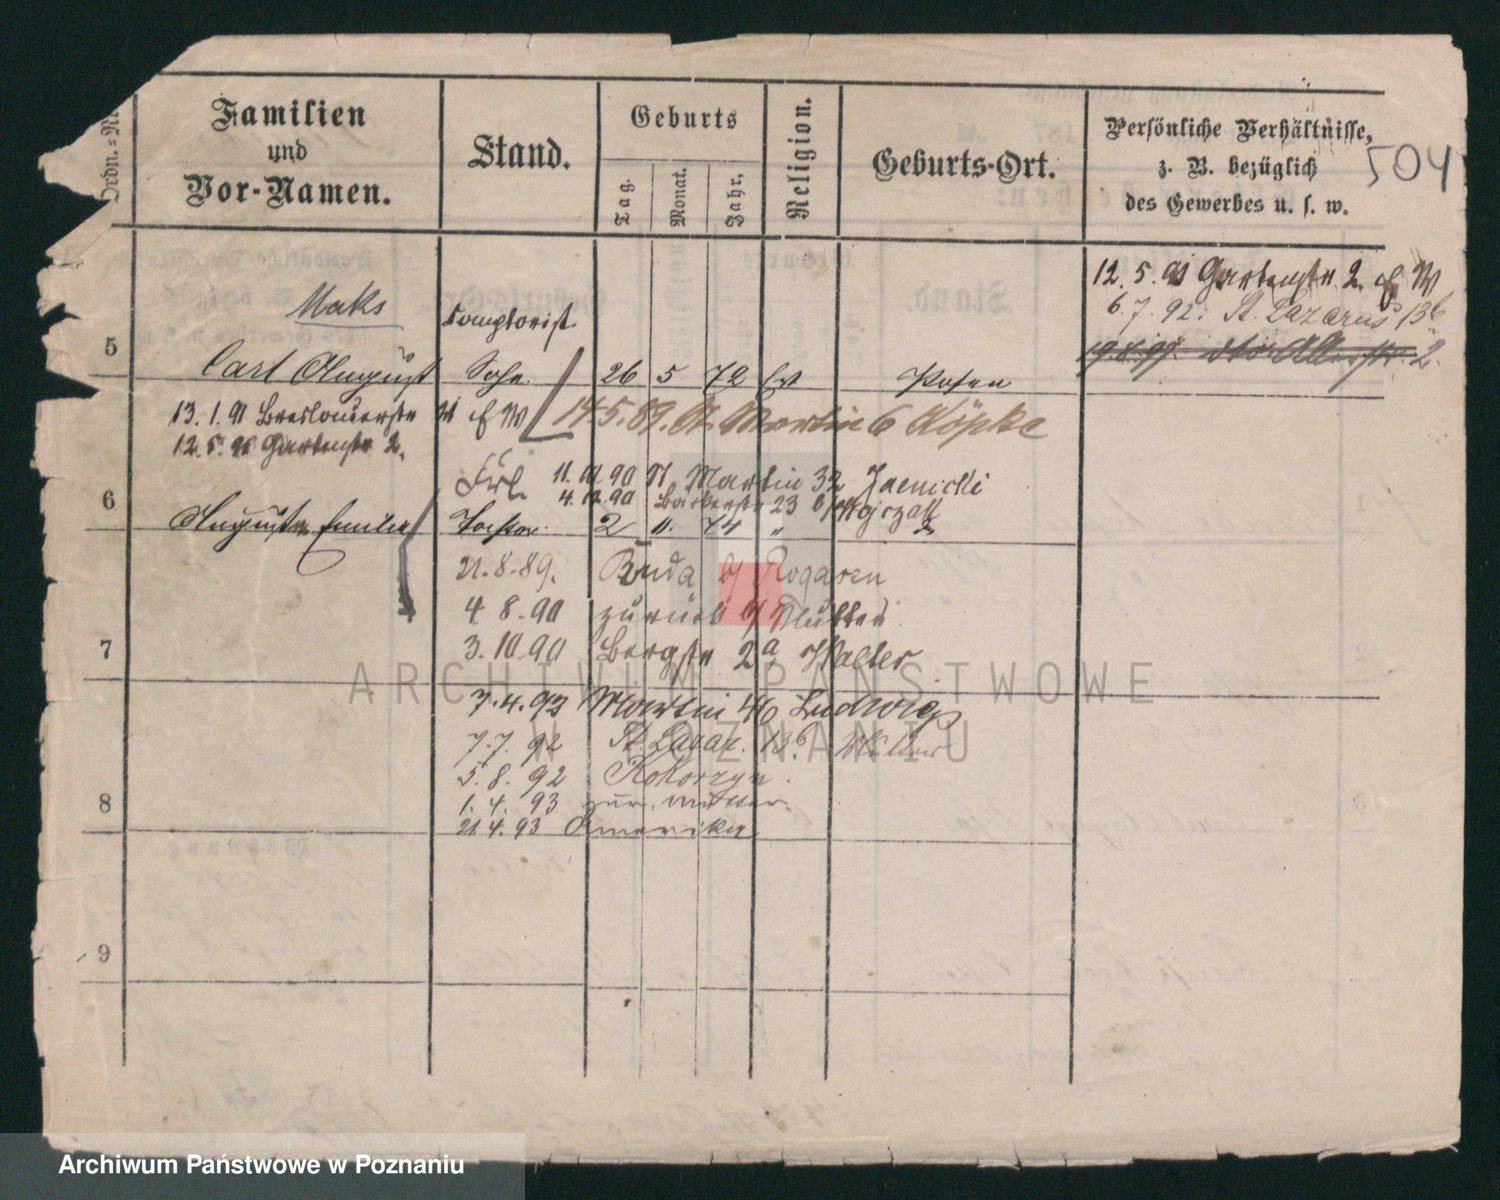 Ordn.=Nr.
Familien
und
Vor-Namen.
Stand.
Geburts
Tag.
Monat.
Jahr.
Religion.
Geburts-Ort.
Persönliche Verhältnisse,
z. B. bezüglich
des Gewerbes u. s. w.
504
12. 5. 91 Gartenstr 2
6. 7. 92. St. Lazarus 13b
Maks
Comptorist
5
Carl August Sohn 26 5 72 Ev Posen
13. 1. 91 Breslauerstr
12. 5. 91 Gartenstr 2.
14. 5. 89. St. Martin 6 Köpke
Frl. 11. 10 90 St. Martin 32 Jaenicki
4. 12. 90 Bäckerstr 23 b/ Wojczak
6
Auguste Emilie Tochter 2 11. 74 "
21. 8. 89. Buda b/ Rogasen
4 8. 90 zurück Mutter
7
3. 10. 90 Bergstr 2a Walter
ARCHIWUM PAŃSTWOWE
7. 4. 92 Martin 40 Ludwig
W POZNANIU
7. 7. 92 St. Lazar. 13b. Mutter
5. 8. 92 Kokorzyn
8
1. 4. 93 zur. Mutter
21. 4. 93 Amerika
9
Archiwum Państwowe w Poznaniu